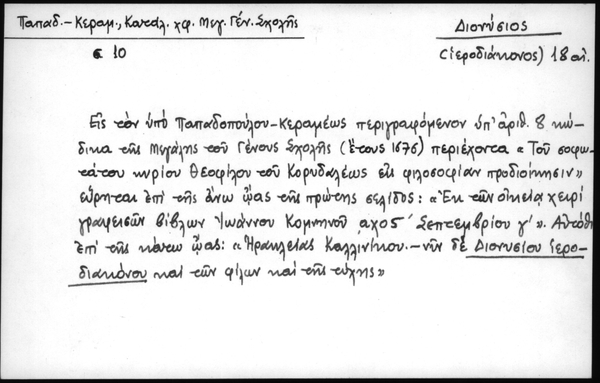 Παπαδ.-Κεραμ., Καταλ. χφ. Μεγ. Γέν. Σχολῆς
Διονύσιος
σ 10
(ἱεροδιάκονος) 18 αἰ.
Εἰς τὸν ὑπὸ Παπαδοπούλου-Κεραμέως περιγραφόμενον ὑπ' ἀριθ. 8 κώ-
δικα τῆς Μεγάλης τοῦ Γένους Σχολῆς (ἔτους 1676) περιέχοντα «Τοῦ σοφω-
τάτου κυρίου Θεοφίλου τοῦ Κορυδαλέως εἰς φιλοσοφίαν προδιοίκησιν»
εὕρηται ἐπὶ τῆς ἄνω ᾤας τῆς πρώτης σελίδος: «Ἐκ τῶν οἰκείᾳ χειρὶ
γραφεισῶν βίβλων Ἰωάννου Κομνηνοῦ αχος' Σεπτεμβρίου γ'». Αὐτόθι
ἐπὶ τῆς κάτω ᾤας: «Ἡρακλείας Καλλινίκου.-νῦν δὲ Διονυσίου ἱερο-
διακόνου καὶ τῶν φίλων καὶ τῆς τύχης»